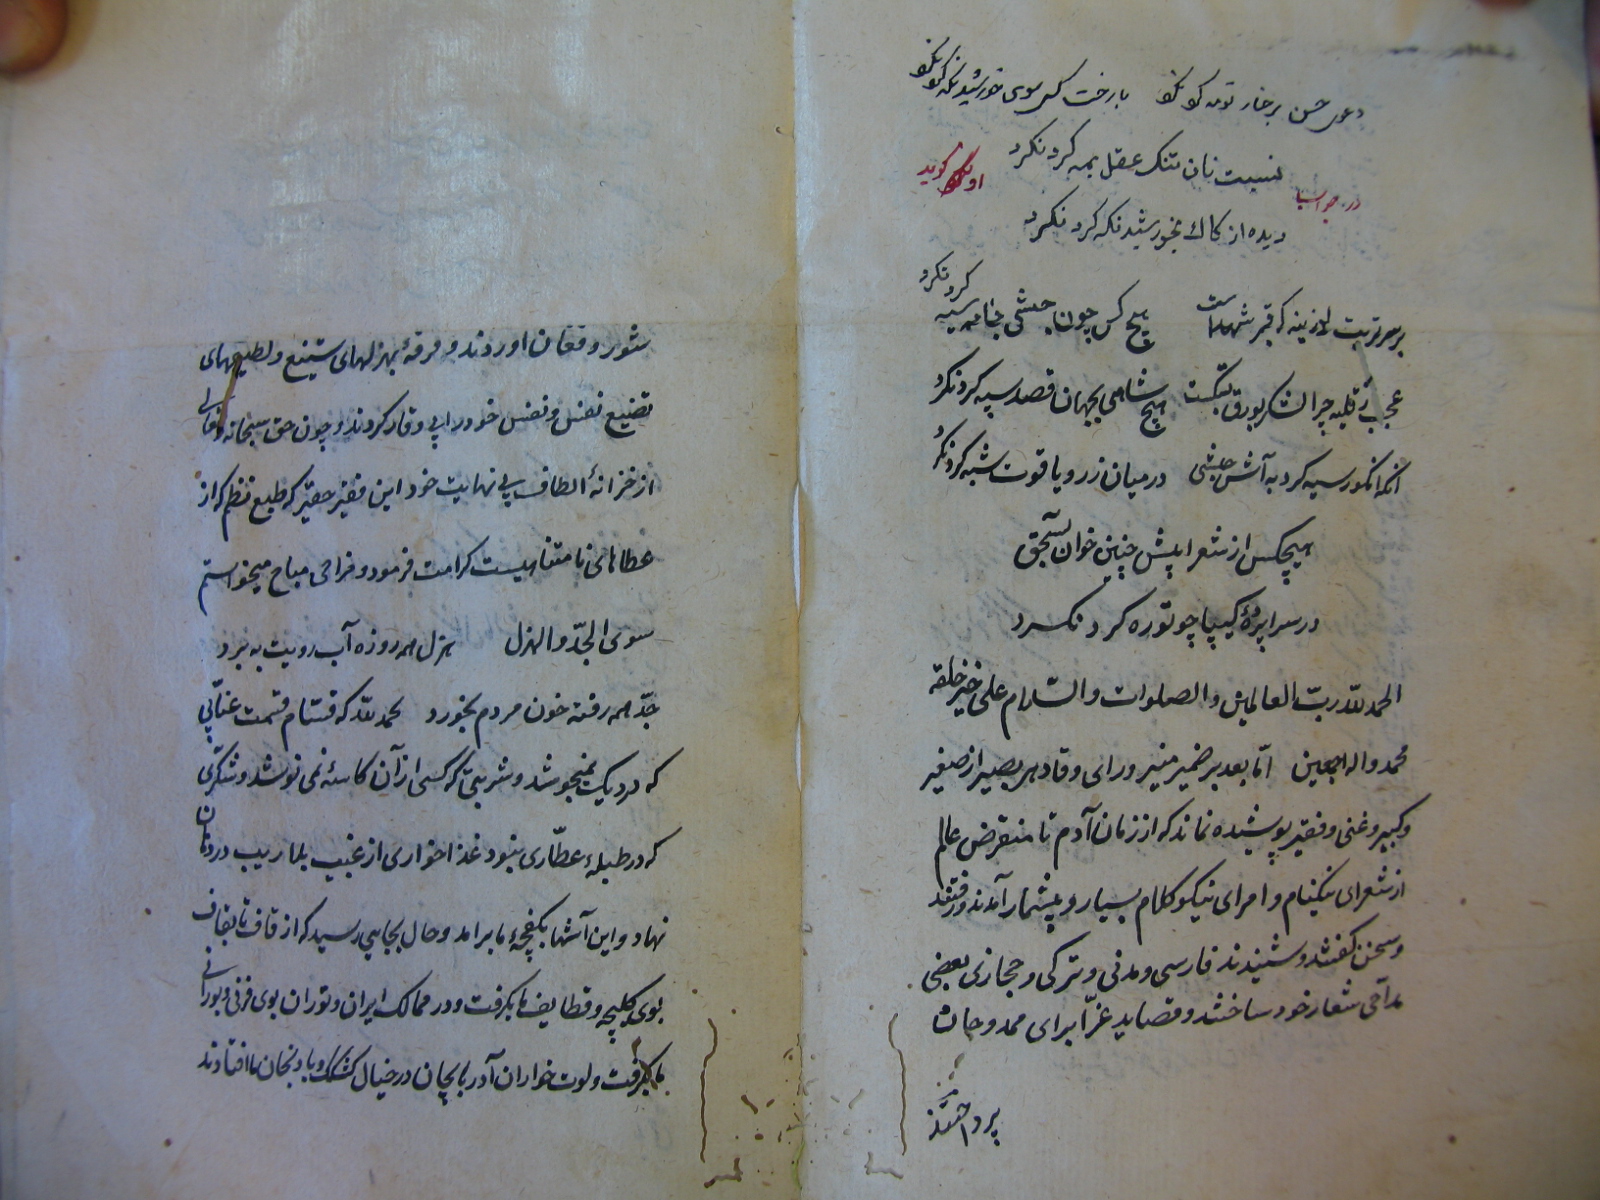 دعوی حسن برخسار تو مه کرد نکرد با رخت کس سوی خورشید نگه کرد نکرد
نسبت نان تنک عقل بمه کرد نکرد
در جواب او گوید
دیده از کاک بخورشید نکه کرد نکرد
بر سر تربت لوزینه که قبر شهداست هیچ کس چون حبشی جامه سیه کرد نکرد
عجب ز قلیه چرا لشکر بورق بشکست هیچ شاهی بجهان قصد سپه کرد نکرد
آنکه انکور سیه کرد به آتش حبشی در میان زر و یاقوت شبه کرد نکرد
هیچکس از شعرا پیش چنین خوان بسحق
در سراپردهٔ کیپا چو توره کرد نکرد
الحمد لله رب العالمین والصلوات والسلام علی خیر خلقه
محمد واله اجمعین امّا بعد بر ضمیر منیر و رای وقاد هر بصیر از صغیر
و کبیر و غنی و فقیر پوشیده نماند که از زمان آدم تا منقرض عالم
از شعرای نیکنام و امرای نیکو کلام بسیار و بیشمار آمدند و رفتند
و سخن گفتند و شنیدند فارسی و مدنی و ترکی و حجازی بعضی
مداحی شعار خود ساختند و قصاید غرّا برای ممدوحان
پرداختند
شور و فغان اوردند و فرقهٔ بهزلهای شنیع و لطیفهای
تضییع نفس و نفس خود را بی وقار کردند و چون حق سبحانه و تعالی
از خزانهٔ الطاف بی نهایت خود این فقیر حقیر که طبع نظم که از
عطاهای نامتناهیست کرامت فرمود و فراحی مباح میخواستم
سوی الجدّ والهزل هزل همه روزه آب رویت به برد
جدّ همه رفته خون مردم بخورد بحمد لله که قسّام قسمت غنائی
که در دیک نمیجوشد و شربتی که کسی از آن کاسه نمی نوشد و شکّری
که در طبلهٔ عطّاری نبود غذا خواری از غیب بلا ریب در دهان
نهاد و این آشها بکفچهٔ ما برامد و حال بجایی رسید که از قاف تا بقاف
بوی کلیچه و قطایف ما بکرفت و در ممالک ایران و توران بوی فرنی و بورانی
ما بکرفت و لوت خواران آذربایجان در خیال کشکک و بادنجان ما افتادند